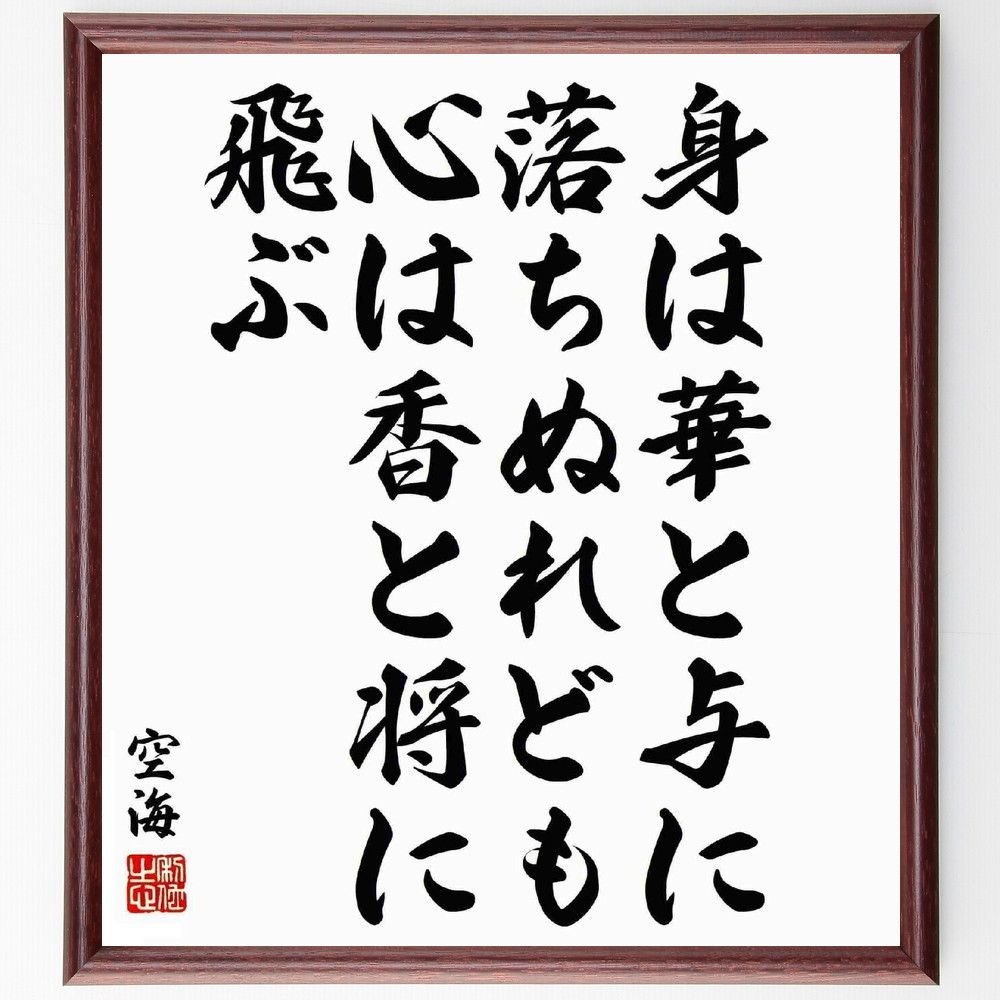 身は華と与に
落ちぬれども
心は香と将に
飛ぶ
空海